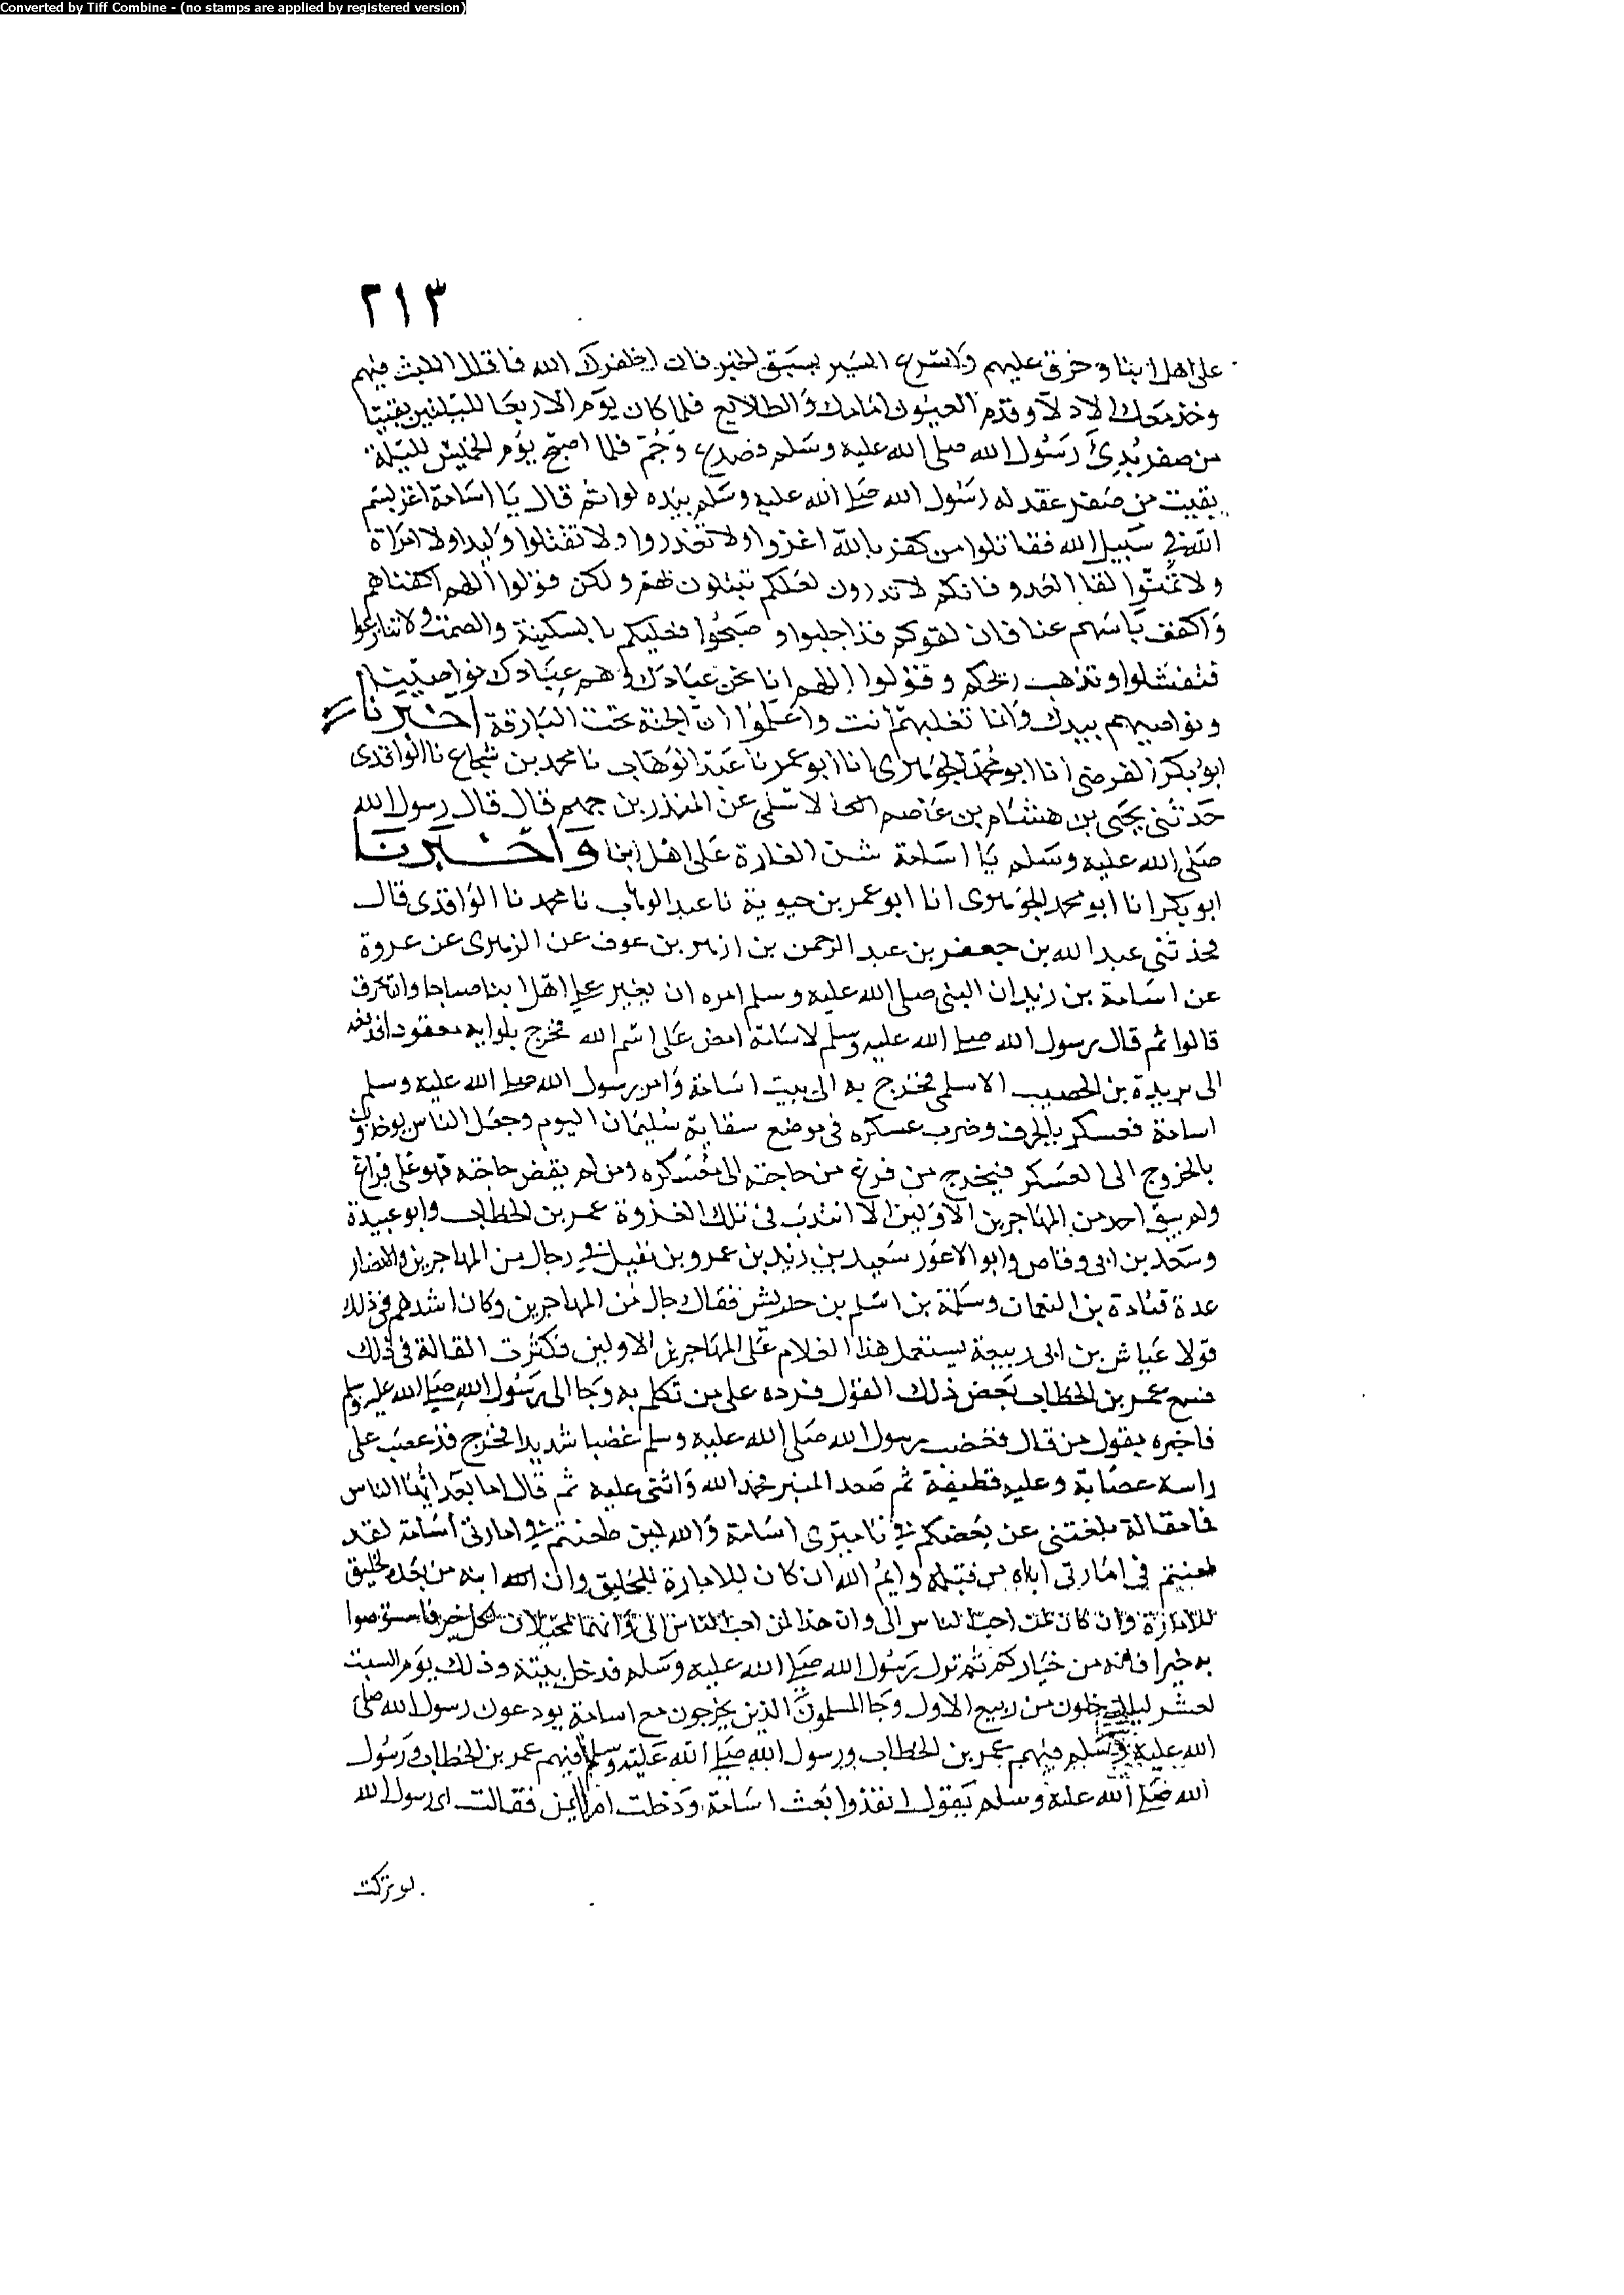 Converted by Tiff Combine - (no stamps are applied by registered version)
٢١٣
على اهل ابنا وحرق عليهم واسرع السير يسبق الخبر فان اظفرك الله فاقلل اللبث فيهم
وخذ معك الادلا وقدم العيون امامك والطلايع فلما كان يوم الاربعا لليلتين بقيتا
من صفر بدئ رسول الله صلى الله عليه وسلم فصدع وحم فلما اصبح يوم الخميس لليلة
بقيت من صفر عقد له رسول الله صلى الله عليه وسلم بيده لوا ثم قال يا اسامة اغز بسم
الله في سبيل الله فقاتلوا من كفر بالله اغزوا ولا تغدروا ولا تقتلوا وليدا ولا امراة
ولا تمنوا لقا العدو فانكم لا تدرون لعلكم تبتلون بهم ولكن قولوا اللهم اكفناهم
واكفف باسهم عنا فان لقوكم قد اجلبوا وصبحوا فعليكم بالسكينة والصمت ولا تنازعوا
فتفشلوا وتذهب ريحكم وقولوا اللهم انا نحن عبادك وهم عبادك نواصينا
ونواصيهم بيدك وانا تغلبهم انت واعلموا ان الجنة تحت البارقة اخبرنا
ابو بكر الفرضي انا ابو محمد الجوهرى انا ابو عمر نا عبد الوهاب نا محمد بن شجاع نا الواقدى
حدثني يحيى بن هشام بن عاصم الاسلمي عن المنذر بن جهم قال قال رسول الله
صلى الله عليه وسلم يا اسامة شن الغارة على اهل ابنا واخبرنا
ابو بكر انا ابو محمد الجوهرى انا ابو عمر بن حيوية نا عبد الوهاب نا محمد نا الواقدى قال
فحدثني عبد الله بن جعفر بن عبد الرحمن بن ازهر بن عوف عن الزهرى عن عروة
عن اسامة بن زيد ان النبي صلى الله عليه وسلم امره ان يغير على اهل ابنا صباحا وان يحرق
قالوا ثم قال رسول الله صلى الله عليه وسلم لاسامة امض على اسم الله فخرج بلوايه معقودا فدفعه
الى بريدة بن الحصيب الاسلمي فخرج به الى بيت اسامة وامر رسول الله صلى الله عليه وسلم
اسامة فعسكر بالجرف وضرب عسكره في موضع سقاية سليمان اليوم وجعل الناس يوخذون
بالخروج الى العسكر فيخرج من فرغ من حاجته الى معسكره ومن لم يقض حاجته فهو على فراغ
ولم يبق احد من المهاجرين الاولين الا انتدب في تلك الغزوة عمر بن الخطاب وابو عبيدة
وسعد بن ابي وقاص وابو الاعور سعيد بن زيد بن عمرو بن نفيل في رجال من المهاجرين والانصار
عدة قتادة بن النعمان وسلمة بن اسلم بن حريش فقال رجال من المهاجرين وكان اشدهم في ذلك
قولا عياش بن ابي ربيعة يستعمل هذا الغلام على المهاجرين الاولين فكثرت القالة في ذلك
فسمع عمر بن الخطاب بعض ذلك القول فرده على من تكلم به وجا الى رسول الله صلى الله عليه وسلم
فاخبره بقول من قال فغضب رسول الله صلى الله عليه وسلم غضبا شديدا فخرج قد عصب على
راسه عصابة وعليه قطيفة ثم صعد المنبر فحمد الله واثنى عليه ثم قال اما بعد ايها الناس
فما مقالة بلغتني عن بعضكم في تاميرى اسامة والله لين طعنتم في امارتي اسامة لقد
طعنتم في امارتي اباه من قبله وايم الله ان كان للامارة لخليق وان ابنه من بعده لخليق
للامارة وان كان لمن احب الناس الى وان هذا لمن احب الناس الى وانهما لمخيلان لكل خير فاستوصوا
به خيرا فانه من خياركم ثم نزل رسول الله صلى الله عليه وسلم فدخل بيته وذلك يوم السبت
لعشر ليالي خلون من ربيع الاول وجا المسلمون الذين يخرجون مع اسامة يودعون رسول الله صلى
الله عليه وسلم فيهم عمر بن الخطاب ورسول الله صلى الله عليه وسلم فيهم عمر بن الخطاب ورسول
الله صلى الله عليه وسلم يقول انفذوا بعث اسامة ودخلت ام ايمن فقالت اى رسول الله
لو تركت